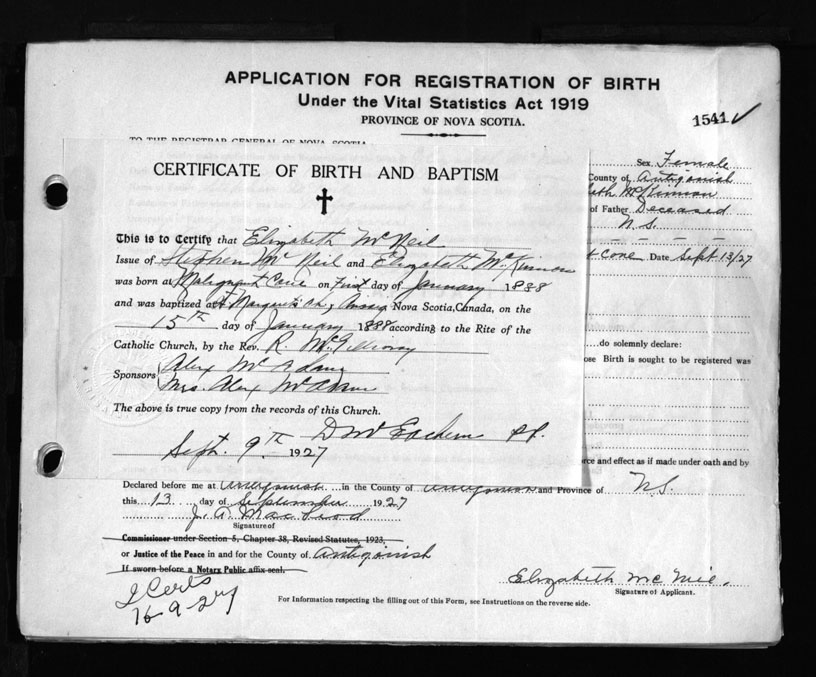 APPLICATION FOR REGISTRATION OF BIRTH
Under the Vital Statistics Act 1919
PROVINCE OF NOVA SCOTIA.
1541 ✓
TO THE REGISTRAR GENERAL OF NOVA SCOTIA
Sex Female
County of Antigonish
beth McKinnon
of Father Deceased
N.S.
Cove Date Sept 13/27
do solemnly declare:
ose Birth is sought to be registered was
rce and effect as if made under oath and by
CERTIFICATE OF BIRTH AND BAPTISM
This is to Certify that Elizabeth McNeil
Issue of Stephen McNeil and Elizabeth McKinnon
was born at Malignant Cove on First day of January 1888
and was baptized at St Margaret's Ch, Nova Scotia, Canada, on the
15th day of January 1888 according to the Rite of the
Catholic Church, by the Rev. R. McGillivray
Sponsors Alex McAdam
Mrs. Alex McAdam
The above is true copy from the records of this Church.
D McEachern P.P.
Sept. 9th 1927
Declared before me at Antigonish in the County of Antigonish and Province of N.S.
this 13 day of September 1927
J. A. MacLeod
Signature of
Commissioner under Section 5, Chapter 38, Revised Statutes, 1923,
or Justice of the Peace in and for the County of Antigonish
If sworn before a Notary Public affix seal.
Elizabeth McNeil.
Signature of Applicant.
16-9-27
For Information respecting the filling out of this Form, see Instructions on the reverse side.